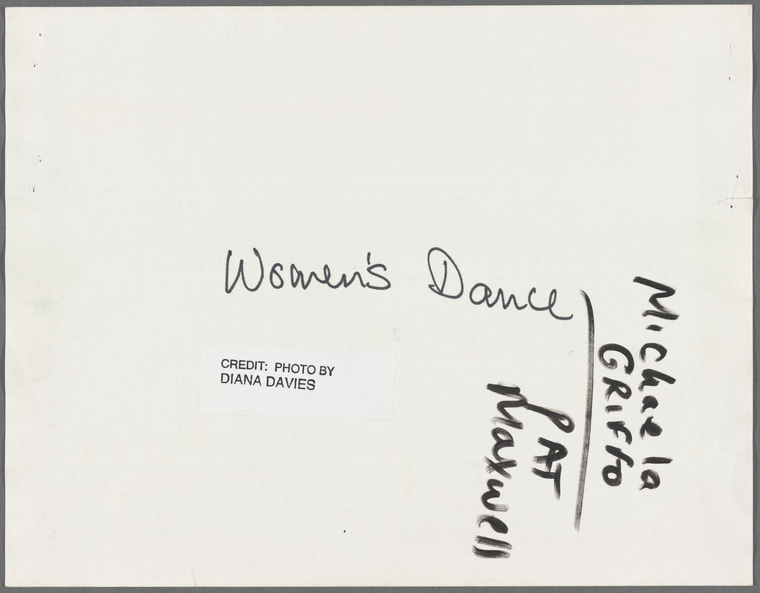 Women's Dance
CREDIT: PHOTO BY
DIANA DAVIES
Michaela
GRIFFO
PAT
Maxwell